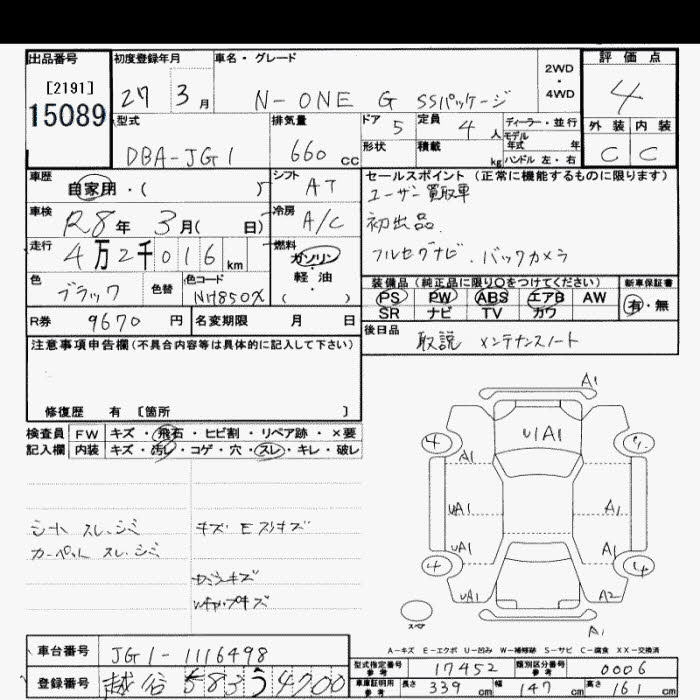 出品番号 初度登録年月 車名・グレード 2WD・4WD 評価点
[2191]
15089
27年 3月 N-ONE G SSパッケージ 4
型式 排気量 ドア 5 定員 4人 ディーラー・並行 外装 内装
DBA-JG1 660cc 形状 積載 kg モデル年式 年 ハンドル 左・右 C C
車歴 自家用・( ) シフト AT セールスポイント (正常に機能するものに限ります)
ユーザー買取車
車検 R8年 3月( 日) 冷房 A/C 初出品
走行 4万2千016km 燃料 ガソリン・軽油・( ) フルセグナビ、バックカメラ
色 ブラック 色替 色コード NH850X
装備品 (純正品に限り○をつけてください) 新車保証書
PS PW ABS エアB AW 有・無
SR ナビ TV カワ
R券 9670円 名変期限 月 日 後日品 取説 メンテナンスノート
注意事項申告欄(不具合内容等は具体的に記入して下さい)
修復歴 有 [箇所 ]
検査員 FW キズ・飛石・ヒビ割・リペア跡・×要
記入欄 内装 キズ・汚レ・コゲ・穴・スレ・キレ・破レ
シート スレ、シミ
カーペット スレ、シミ
A1
U1A1
4 4
A1
UA1 A1
UA1 A1
4 4
UA1 A2
スペア
A1
A-キズ E-エクボ U-凹み W-補修跡 S-サビ C-腐食 XX-交換済
車台番号 JG1-1116498
登録番号 越谷 583 う 4700
型式指定番号 参考 17452 類別区分番号 参考 0006
車庫証明用 参考 長さ 339cm 幅 147cm 高さ 161cm